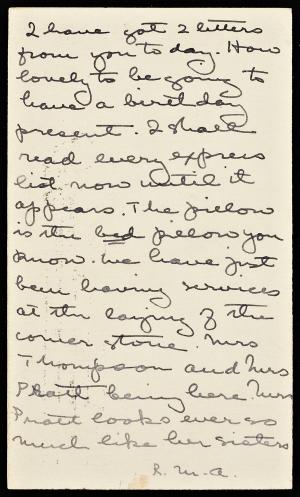 I have got 2 letters
from you to day. How
lovely to be going to
have a birthday
present. I shall
read every express
list now until it
appears. The pillow
is the bed pillow you
know. We have just
been having services
at the laying of the
corner stone. Mrs
Thompson and Mrs
Pratt being here. Mrs
Pratt looks ever so
much like her sisters
R. M. A.